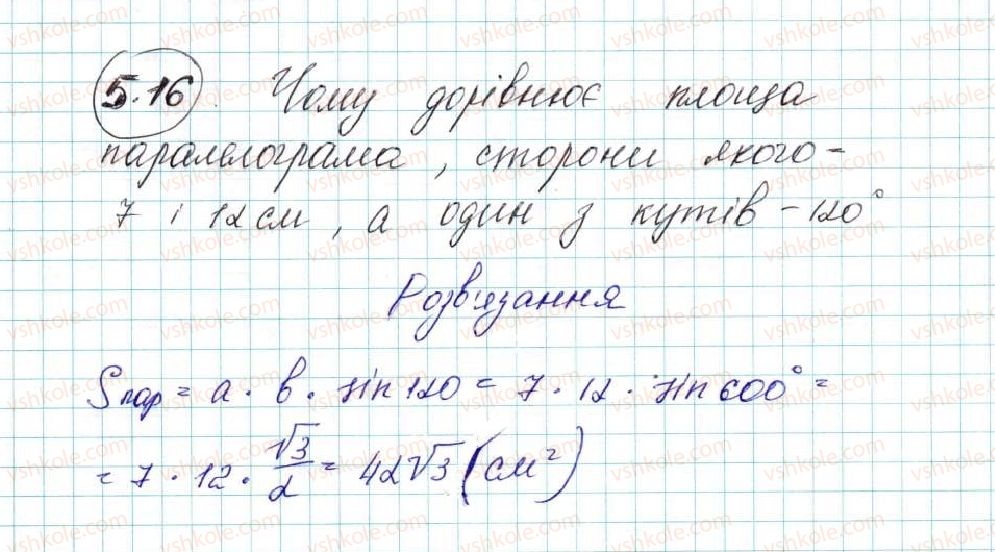 5.16. Чому дорівнює площа
паралелограма, сторони якого -
7 і 12 см, а один з кутів - 120°
Розв'язання
Sпар = a · b · sin 120 = 7 · 12 · sin 600° =
= 7 · 12 · √3/2 = 42√3 (см²)